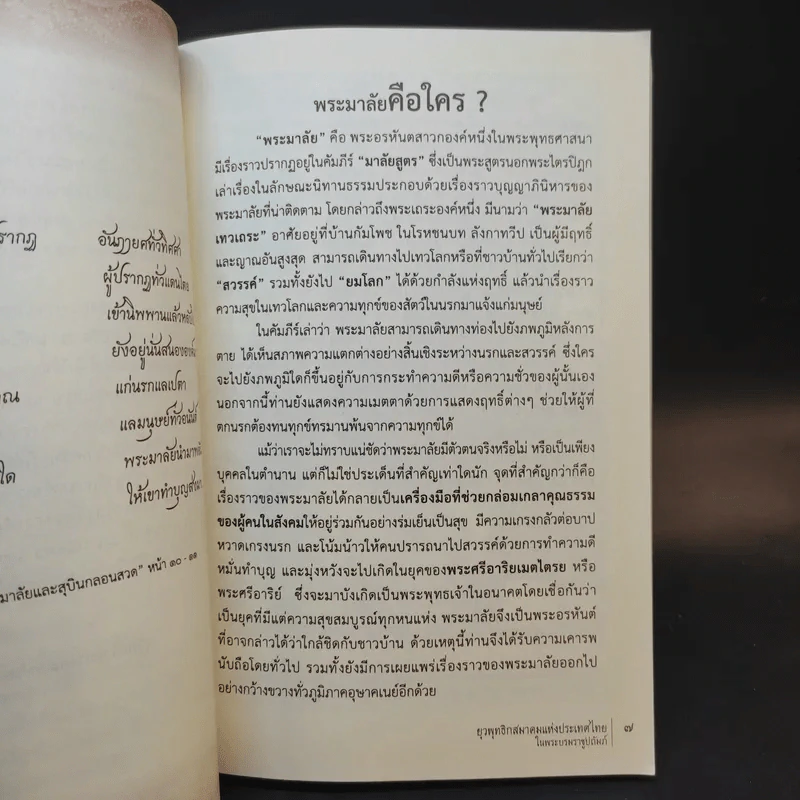 อันภายศทั่วทิศศา
ผู้ปรากฏทั่วแดนไตย
เข้านิพพานแล้ว
ยังอยู่นั่นสนอง
แก่นรกแลเปตา
แลมนุษย์ทั่วอนันต์
พระมาลัยนำมา
ให้เขาทำบุญ
มาลัยและสุบินกลอนสวด” หน้า ๑๐-๑๑
พระมาลัยคือใคร ?
“พระมาลัย” คือ พระอรหันตสาวกองค์หนึ่งในพระพุทธศาสนา
มีเรื่องราวปรากฏอยู่ในคัมภีร์ “มาลัยสูตร” ซึ่งเป็นพระสูตรนอกพระไตรปิฎก
เล่าเรื่องในลักษณะนิทานธรรมประกอบด้วยเรื่องราวบุญญาภินิหารของ
พระมาลัยที่น่าติดตาม โดยกล่าวถึงพระเถระองค์หนึ่ง มีนามว่า “พระมาลัย
เทวเถระ” อาศัยอยู่ที่บ้านกัมโพช ในโรหชนบท ลังกาทวีป เป็นผู้มีฤทธิ์
และญาณอันสูงสุด สามารถเดินทางไปเทวโลกหรือที่ชาวบ้านทั่วไปเรียกว่า
“สวรรค์” รวมทั้งยังไป “ยมโลก” ได้ด้วยกำลังแห่งฤทธิ์ แล้วนำเรื่องราว
ความสุขในเทวโลกและความทุกข์ของสัตว์ในนรกมาแจ้งแก่มนุษย์
ในคัมภีร์เล่าว่า พระมาลัยสามารถเดินทางท่องไปยังภพภูมิหลังการ
ตาย ได้เห็นสภาพความแตกต่างอย่างสิ้นเชิงระหว่างนรกและสวรรค์ ซึ่งใคร
จะไปยังภพภูมิใดก็ขึ้นอยู่กับการกระทำความดีหรือความชั่วของผู้นั้นเอง
นอกจากนี้ท่านยังแสดงความเมตตาด้วยการแสดงฤทธิ์ต่างๆ ช่วยให้ผู้ที่
ตกนรกต้องทนทุกข์ทรมานพ้นจากความทุกข์ได้
แม้ว่าเราจะไม่ทราบแน่ชัดว่าพระมาลัยมีตัวตนจริงหรือไม่ หรือเป็นเพียง
บุคคลในตำนาน แต่ก็ไม่ใช่ประเด็นที่สำคัญเท่าใดนัก จุดที่สำคัญกว่าก็คือ
เรื่องราวของพระมาลัยได้กลายเป็นเครื่องมือที่ช่วยกล่อมเกลาคุณธรรม
ของผู้คนในสังคมให้อยู่ร่วมกันอย่างร่มเย็นเป็นสุข มีความเกรงกลัวต่อบาป
หวาดเกรงนรก และโน้มน้าวให้คนปรารถนาไปสวรรค์ด้วยการทำความดี
หมั่นทำบุญ และมุ่งหวังจะไปเกิดในยุคของพระศรีอาริยเมตไตรย หรือ
พระศรีอาริย์ ซึ่งจะมาบังเกิดเป็นพระพุทธเจ้าในอนาคตโดยเชื่อกันว่า
เป็นยุคที่มีแต่ความสุขสมบูรณ์ทุกหนแห่ง พระมาลัยจึงเป็นพระอรหันต์
ที่อาจกล่าวได้ว่าใกล้ชิดกับชาวบ้าน ด้วยเหตุนี้ท่านจึงได้รับความเคารพ
นับถือโดยทั่วไป รวมทั้งยังมีการเผยแพร่เรื่องราวของพระมาลัยออกไป
อย่างกว้างขวางทั่วภูมิภาคอุษาคเนย์อีกด้วย
ยุวพุทธิกสมาคมแห่งประเทศไทย
ในพระบรมราชูปถัมภ์
๗